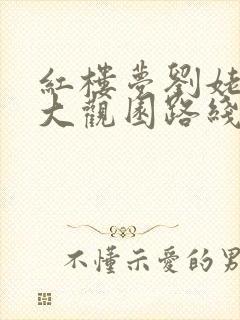 紅樓夢劉姥
大觀園路綫
不懂示愛的男